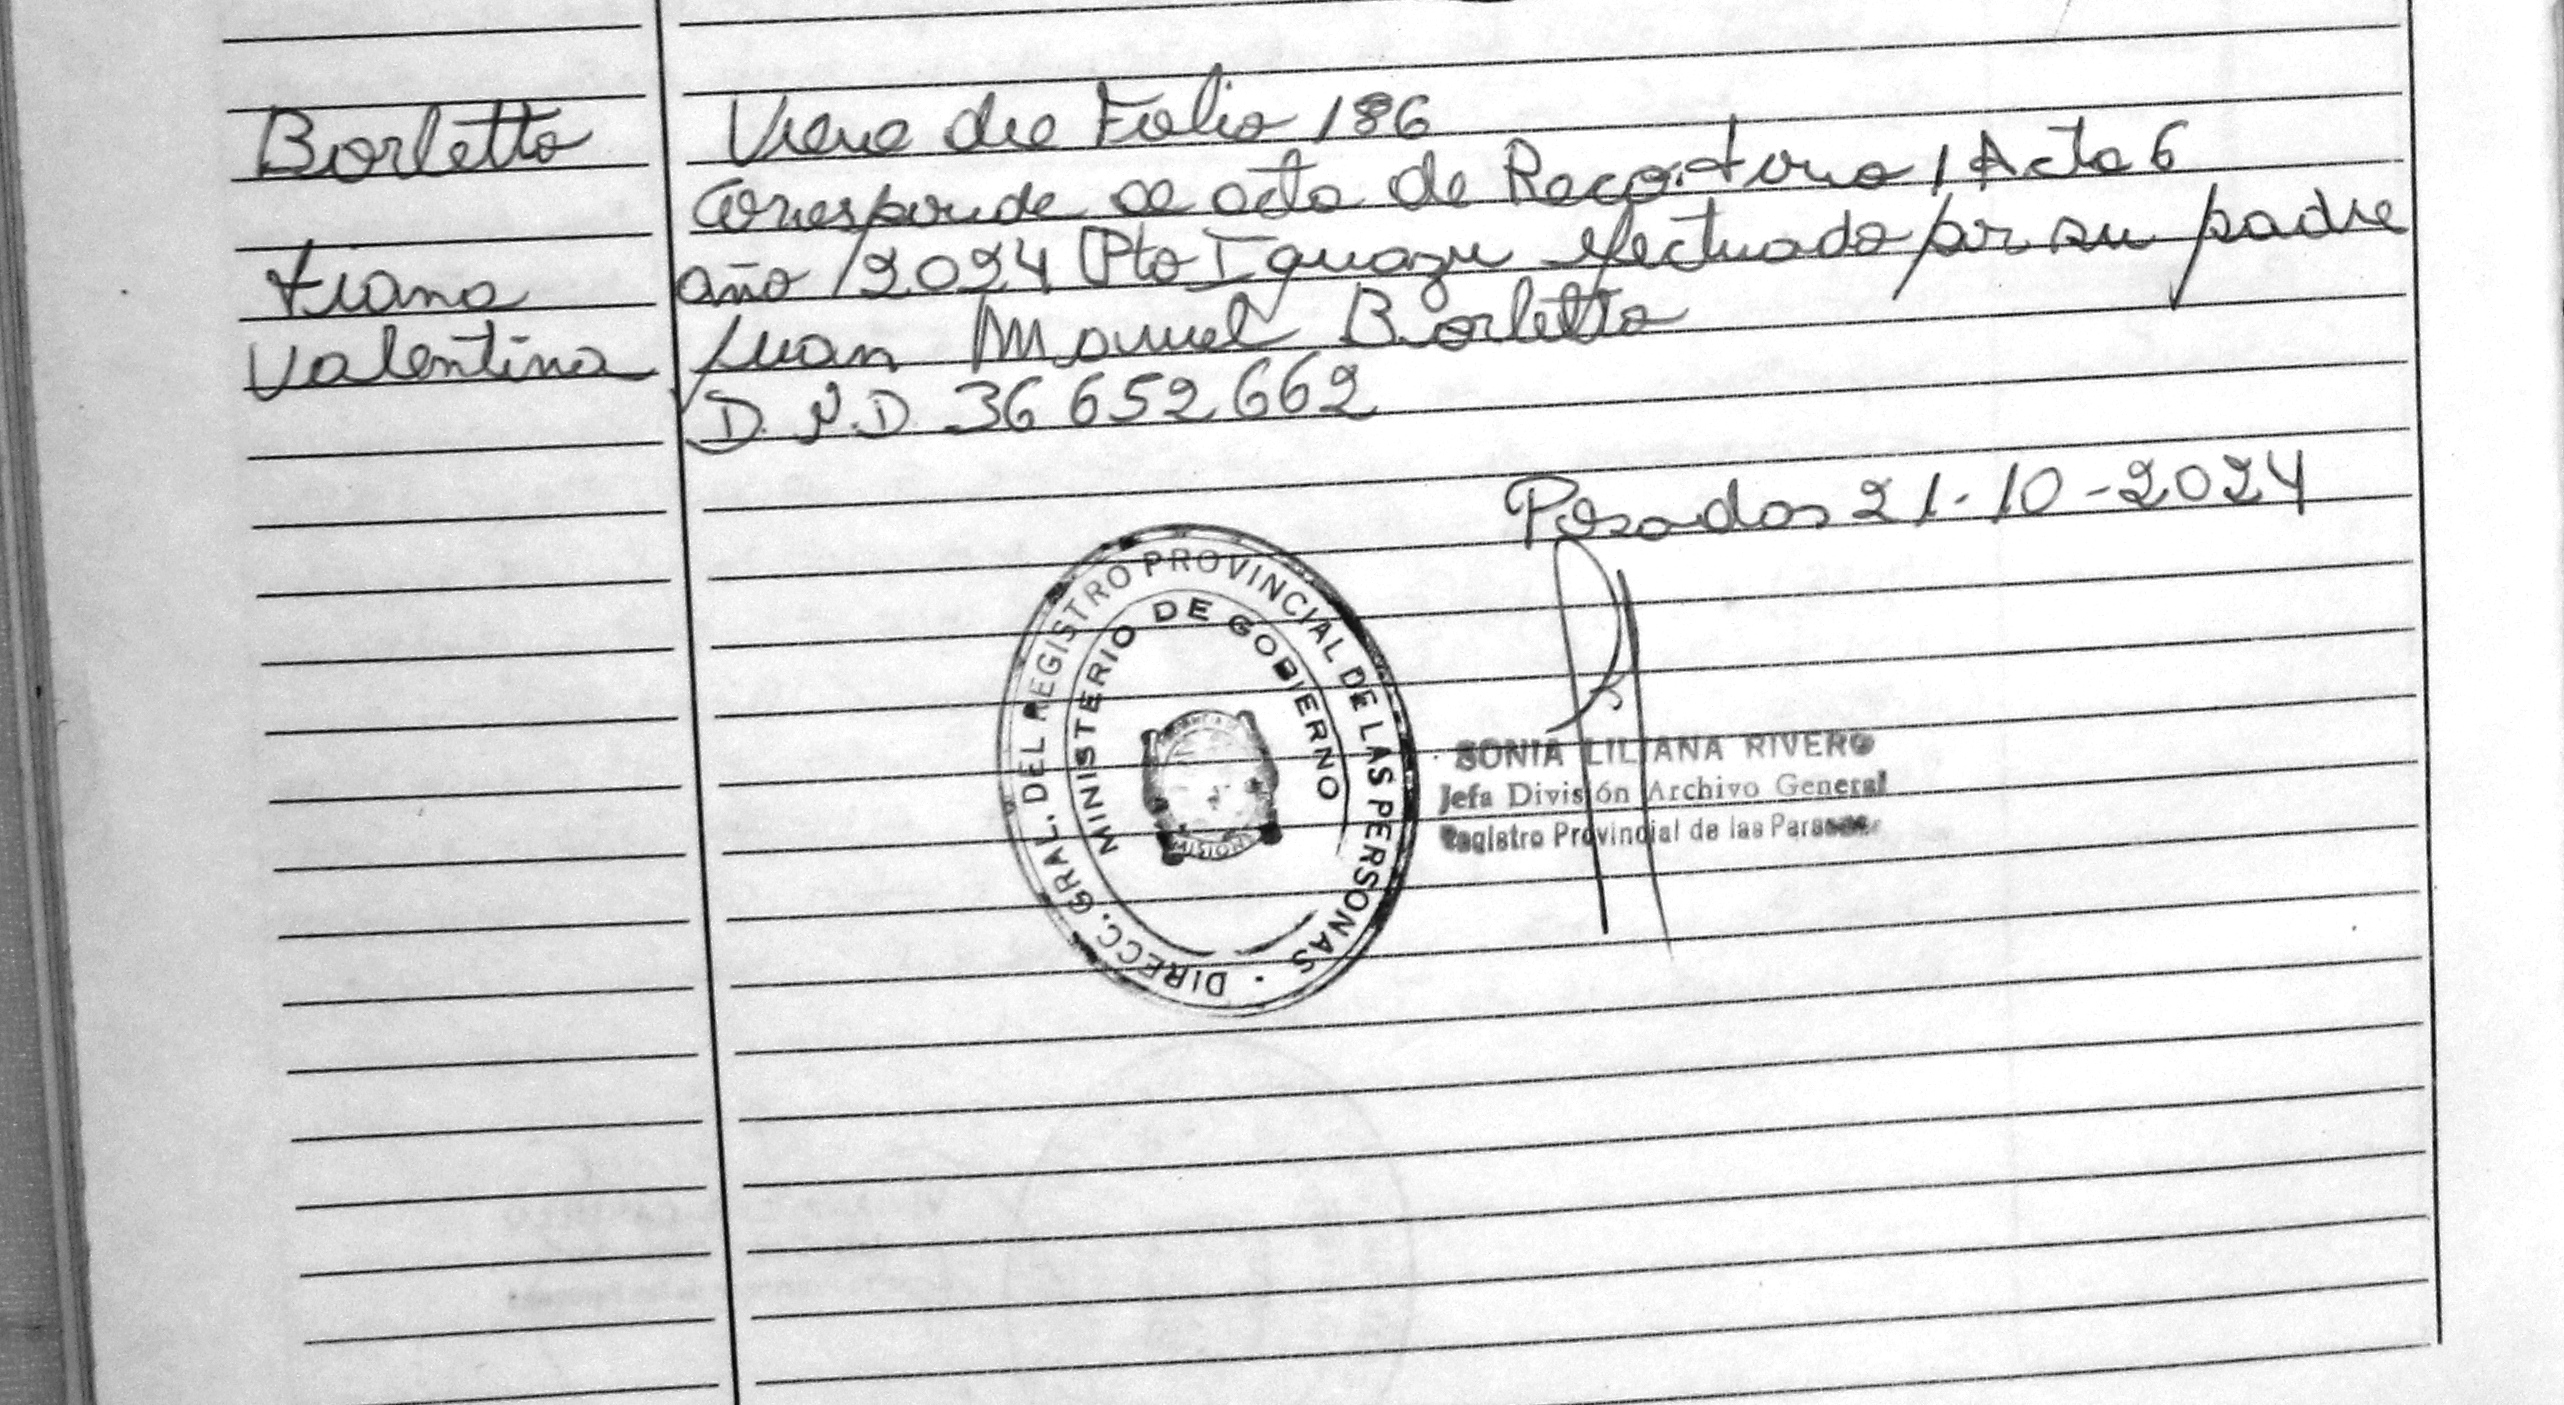 Borletto
Tiana
Valentina
Viene de Folio 186
Corresponde a acta de Reco. tomo 1 Acta 6
año 2024 Pto Iguazu efectuado por su padre
Juan Manuel Borletto
D.N.D. 36 652 662
Posadas 21-10-2024
DIRECC. GRAL. DEL REGISTRO PROVINCIAL DE LAS PERSONAS
MINISTERIO DE GOBIERNO
MISIONES
SONIA LILIANA RIVERO
Jefa División Archivo General
Registro Provincial de las Personas